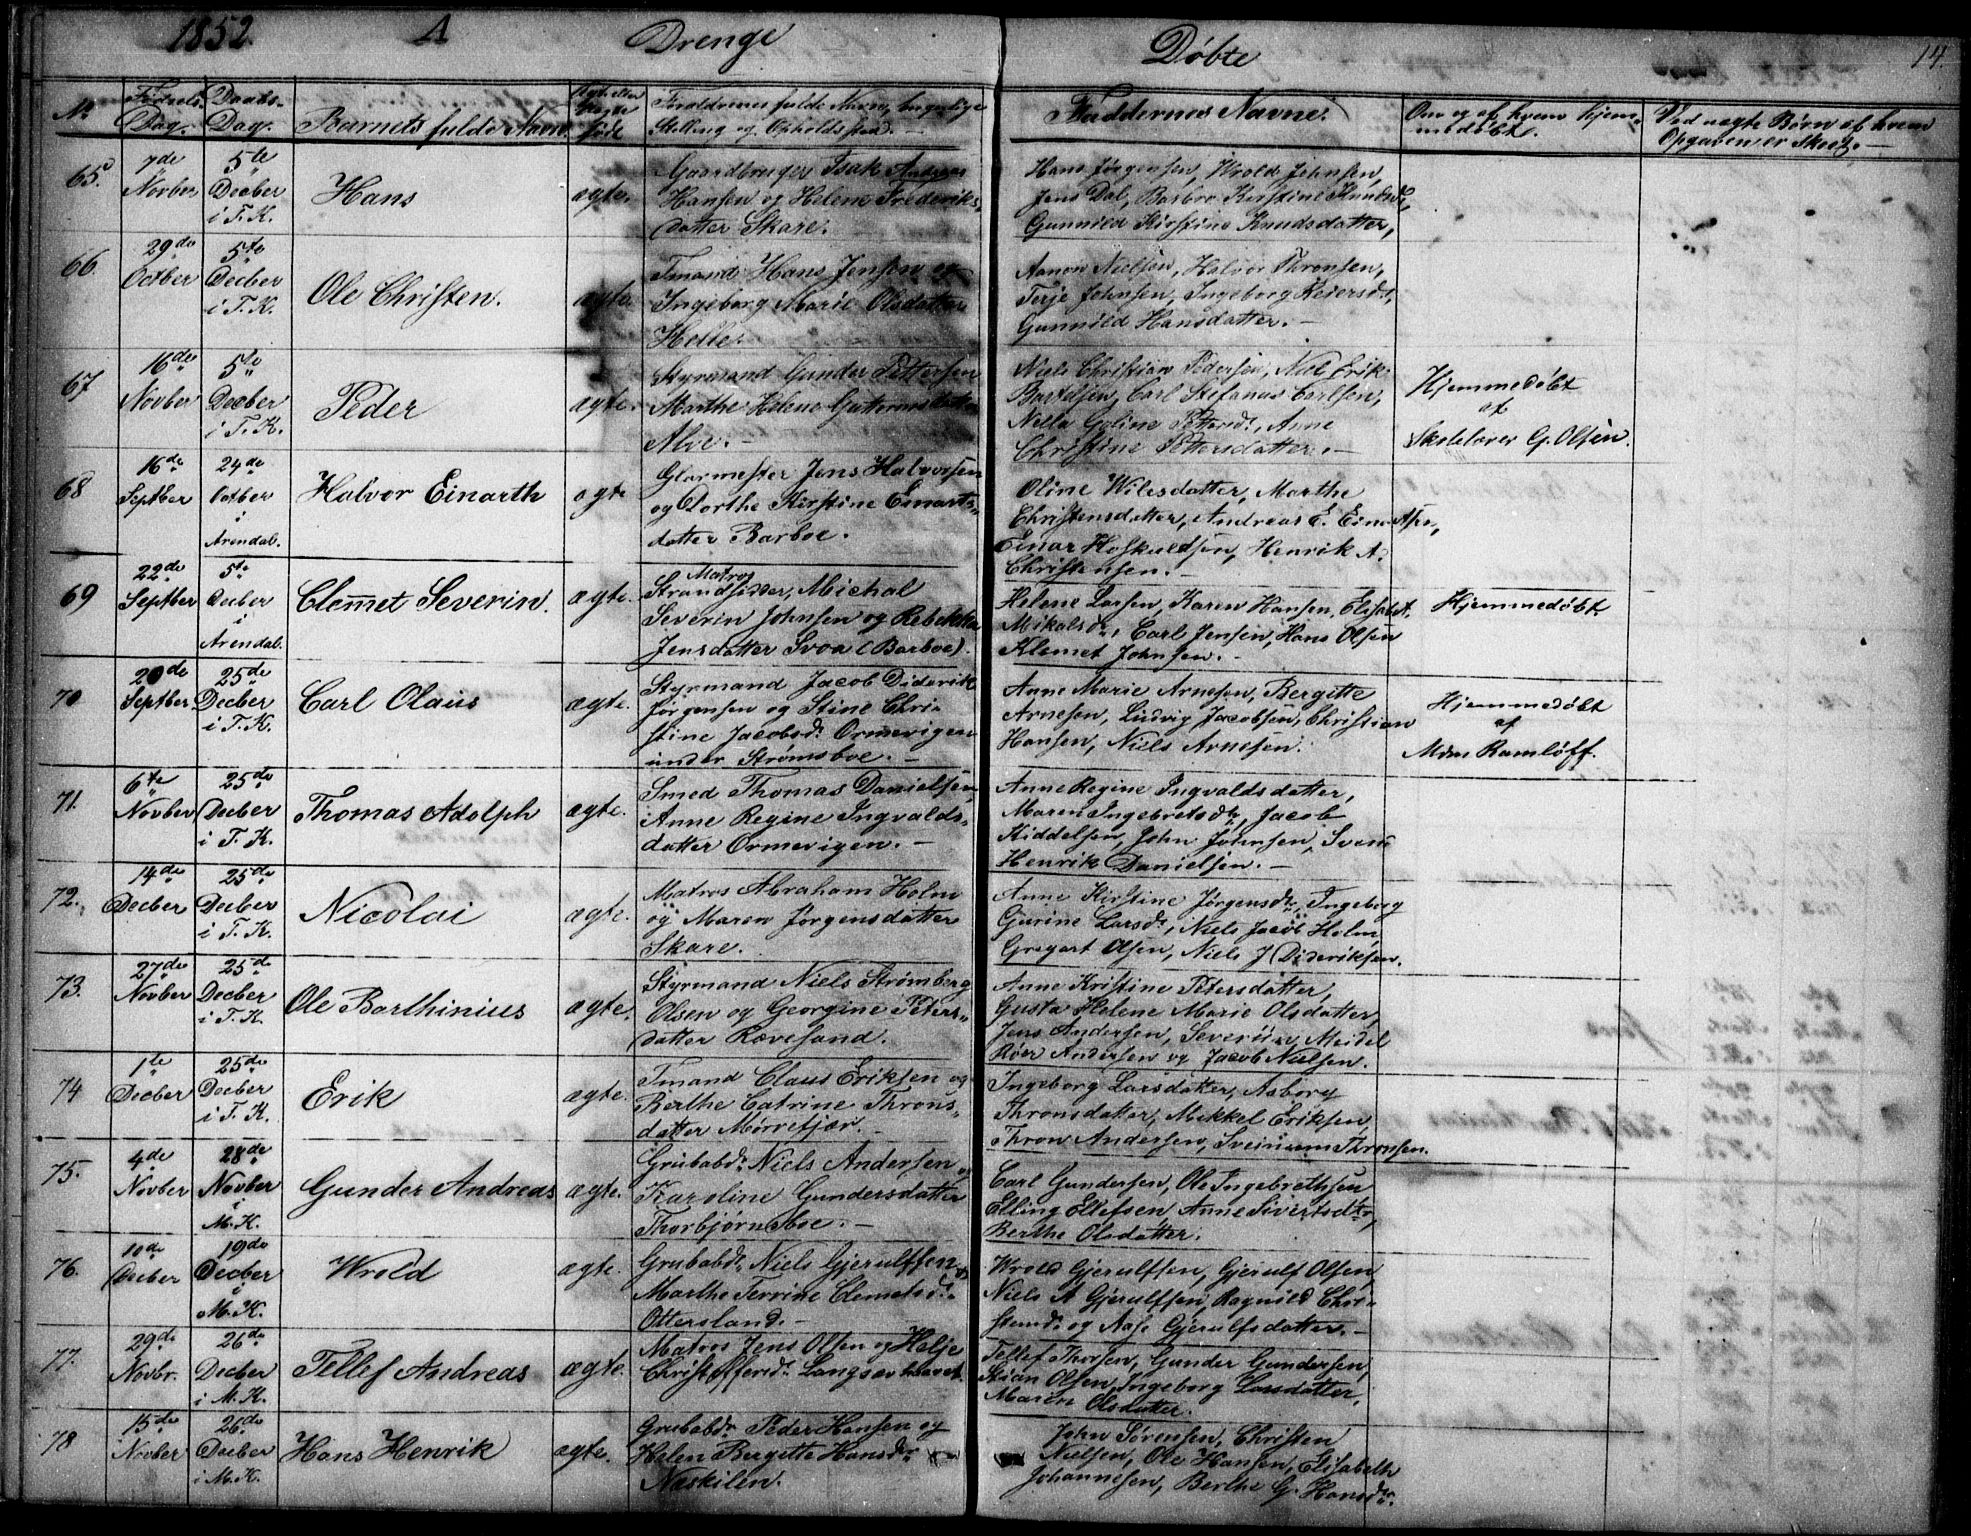 1852. A Drenge Døbte 14.
No Fødsels-Dag. Daabs-Dag. Barnets fulde Navn. Ægte eller uægte føde Forældrenes fulde Navn, borgerlige Stilling og Opholdssted. Faddernes Navne. Om og af hvem hjemmedøbt. Ved uægte Børn af hvem Opgaven er skeet.
65. 7de Novber 5te Decber i T. K. Hans ægte.
Gaardbruger Isak Andreas
Hansen og Helene Frederiks-
datter Skare.
Hans Jørgensen, Wrold Johnsen,
Jens Dal, Barbro Kirstine Knudsdr,
Gunnild Kirstine Knudsdatter,
66. 29de Octber 5te Decber i T. K. Ole Christen. ægte.
Tmand Hans Jensen og
Ingeborg Marie Olsdatter
Helle.
Aanon Nielsen, Halvor Thronsen,
Terje Johnsen, Ingeborg Reiersdr,
Gunnild Hansdatter.
67 16de Novber 5te Decber i T. K. Peder ægte.
Styrmand Gunder Pettersen
Marthe Helene Guttormsdatter
Alve.
Niels Christian Pedersen, Niel Erik
Bertelsen, Carl Stefanus Carlsen,
Nella Goline Pettersdr, Anne
Christine Pettersdatter.
Hjemmedøbt
af
Skolelærer G. Olsen.
68 16de Septber 24de Octber i Arendal. Halvor Einarth ægte
Glarmester Jens Halvorsen
og Dorthe Kirstine Einarts-
datter Barboe.
Oline Wilesdatter, Marthe
Christensdatter, Andreas E. Einertsen,
Einar Hoskuldsen, Henrik A.
Christensen.
69 22de Septber 5te Decber i Arendal. Clemet Severin. ægte.
Matros
Strandsidder, Michal
Severin Johnsen og Rebekka
Jensdatter Svoa (Barboe).
Helene Larsen, Karen Hansen, Elisabet
Mikalsdr, Carl Jensen, Hans Olsen
Klemet Johnsen.
Hjemmedøbt
70 20de Septber 25de Decber i T. K. Carl Olaus ægte.
Styrmand Jacob Diderik
Jørgensen og Stine Chri-
stine Jacobsdr Ormevigen
under Strømsboe.
Anne Marie Arnesen, Bergitte
Arnesen, Ludvig Jacobsen, Christian
Hansen, Niels Arnesen.
Hjemmedøbt
af
Mdm Ramløff.
71. 6te Novber 25de Decber i T. K. Thomas Adolph ægte.
Smed Thomas Danielsen,
Anne Regine Ingvalds-
datter Ormevigen.
Anne Regine Ingvaldsdatter,
Maren Ingebretsdr, Jacob
Kiddelsen, John Johnsen, Svend
Henrik Danielsen.
72. 14de Decber 25de Decber i T. K. Nicolai ægte.
Matros Abraham Holm
og Maren Jørgensdatter
Skare.
Anne Kirstine Jørgensdr, Ingeborg
Gurine Larsdr, Niels Jacob Holm,
Gregart Olsen, Niels J Dideriksen.
73. 27de Novber 25de Decber i T. K. Ole Barthinius ægte.
Styrmand Niels Strømberg
Olsen og Georgine Peters-
datter Rævesand.
Anne Kristine Petersdatter,
Gusta Helene Marie Olsdatter,
Jens Andersen, Severin, Meidel
Røer Andersen og Jacob Nielsen.
74 1te Decber 25de Decber i T. K. Erik ægte.
Tmand Claus Eriksen og
Berthe Catrine Throns-
datter Mørrefjær.
Ingeborg Larsdatter, Asborg
Thronsdatter, Mikkel Eriksen,
Thron Andersen, Sveinum Thronsen.
75. 4de Novber 28de Novber i M. K. Gunder Andreas ægte.
Grubabdr Niels Andersen og
Karoline Gundersdatter
Thorbjørnsboe.
Carl Gundersen, Ole Ingebrethsen
Elling Ellefsen Anne Sivertsdtr,
Berthe Olsdatter.
76. 10de Decber 19de Decber i M. K. Wrold ægte.
Grubabdr Niels Gjerulfsen og
Marthe Terrine Clemetsdr
Ottersland.
Wrold Gjerulfsen, Gjerulf Olsen,
Niels A Gjerulfsen, Ragnild Chri-
stensdr og Aase Gjerulfsdatter.
77. 29de Novbr. 26de Decber i M. K. Tellef Andreas ægte.
Matros Jens Olsen og Helje
Christoffersdr Langsævhavet
Tellef Thorsen, Gunder Gundersen,
Stian Olsen, Ingeborg Larsdatter,
Maren Olsdatter.
78 15de Novber 26de Decber i M. K. Hans Henrik ægte.
Grubabdr Peder Hansen og
Helen Bergitte Hansdr
Naskilen.
John Sørensen, Christen
Nielsen, Ole Hansen, Elisabeth
Johannesen, Berthe G. Hansdr.